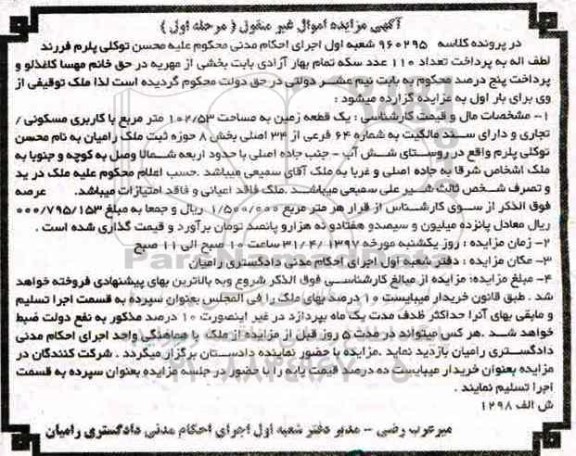 آگهی مزایده اموال غیر منقول ( مرحله اول )
در پرونده کلاسه ۹۶۰۲۹۵ شعبه اول اجرای احکام مدنی محکوم علیه محسن توکلی پلرم فرزند
لطف اله به پرداخت تعداد ۱۱۰ عدد سکه تمام بهار آزادی بابت بخشی از مهریه در حق خانم مهسا کاغذلو و
پرداخت پنج درصد محکوم به بابت نیم عشر دولتی در حق دولت محکوم گردیده است لذا ملک توقیفی از
وی برای بار اول به مزایده گزارده میشود :
۱- مشخصات مال و قیمت کارشناسی : یک قطعه زمین به مساحت ۱۰۲/۵۳ متر مربع با کاربری مسکونی /
تجاری و دارای سند مالکیت به شماره ۶۴ فرعی از ۳۴ اصلی بخش ۸ حوزه ثبت ملک رامیان به نام محسن
توکلی پلرم واقع در روستای شش آب - جنب جاده اصلی با حدود اربعه شمالا وصل به کوچه و جنوبا به
ملک اشخاص شرقا به جاده اصلی و غربا به ملک آقای سمیعی میباشد .حسب اعلام محکوم علیه ملک در ید
و تصرف شخص ثالث شیر علی سمیعی میباشد .ملک فاقد اعیانی و فاقد امتیازات میباشد. عرصه
فوق الذکر از سوی کارشناس از قرار هر متر مربع ۱/۵۰۰/۰۰۰ ریال و جمعا به مبلغ ۰۰۰/۷۹۵/۱۵۳
ریال معادل پانزده میلیون و سیصدو هفتادو نه هزارو پانصد تومان برآورد و قیمت گذاری شده است .
۲- زمان مزایده : روز یکشنبه مورخه ۳۱/۴/۱۳۹۷ ساعت ۱۰ صبح الی ۱۱ صبح
۳- مکان مزایده : دفتر شعبه اول اجرای احکام مدنی دادگستری رامیان
۴- مبلغ مزایده: مزایده از مبالغ کارشناسی فوق الذکر شروع وبه بالاترین بهای پیشنهادی فروخته خواهد
شد . طبق قانون خریدار میبایست ۱۰ درصد بهای ملک را فی المجلس بعنوان سپرده به قسمت اجرا تسلیم
و مابقی بهای آنرا حداکثر ظدف مدت یک ماه بپردازد در غیر اینصورت ۱۰ درصد مذکور به نفع دولت ضبط
خواهد شد .هر کس میتواند در مدت ۵ روز قبل از مزایده از ملک با هماهنگی واحد اجرای احکام مدنی
دادگستری رامیان بازدید نماید .مزایده با حضور نماینده دادستان برگزار میگردد . شرکت کنندگان در
مزایده بعنوان خریدار میبایست ده درصد قیمت پایه را با حضور در جلسه مزایده بعنوان سپرده به قسمت
اجرا تسلیم نمایند .
ش الف ۱۲۹۸
میرعرب رضی - مدیر دفتر شعبه اول اجرای احکام مدنی دادگستری رامیان